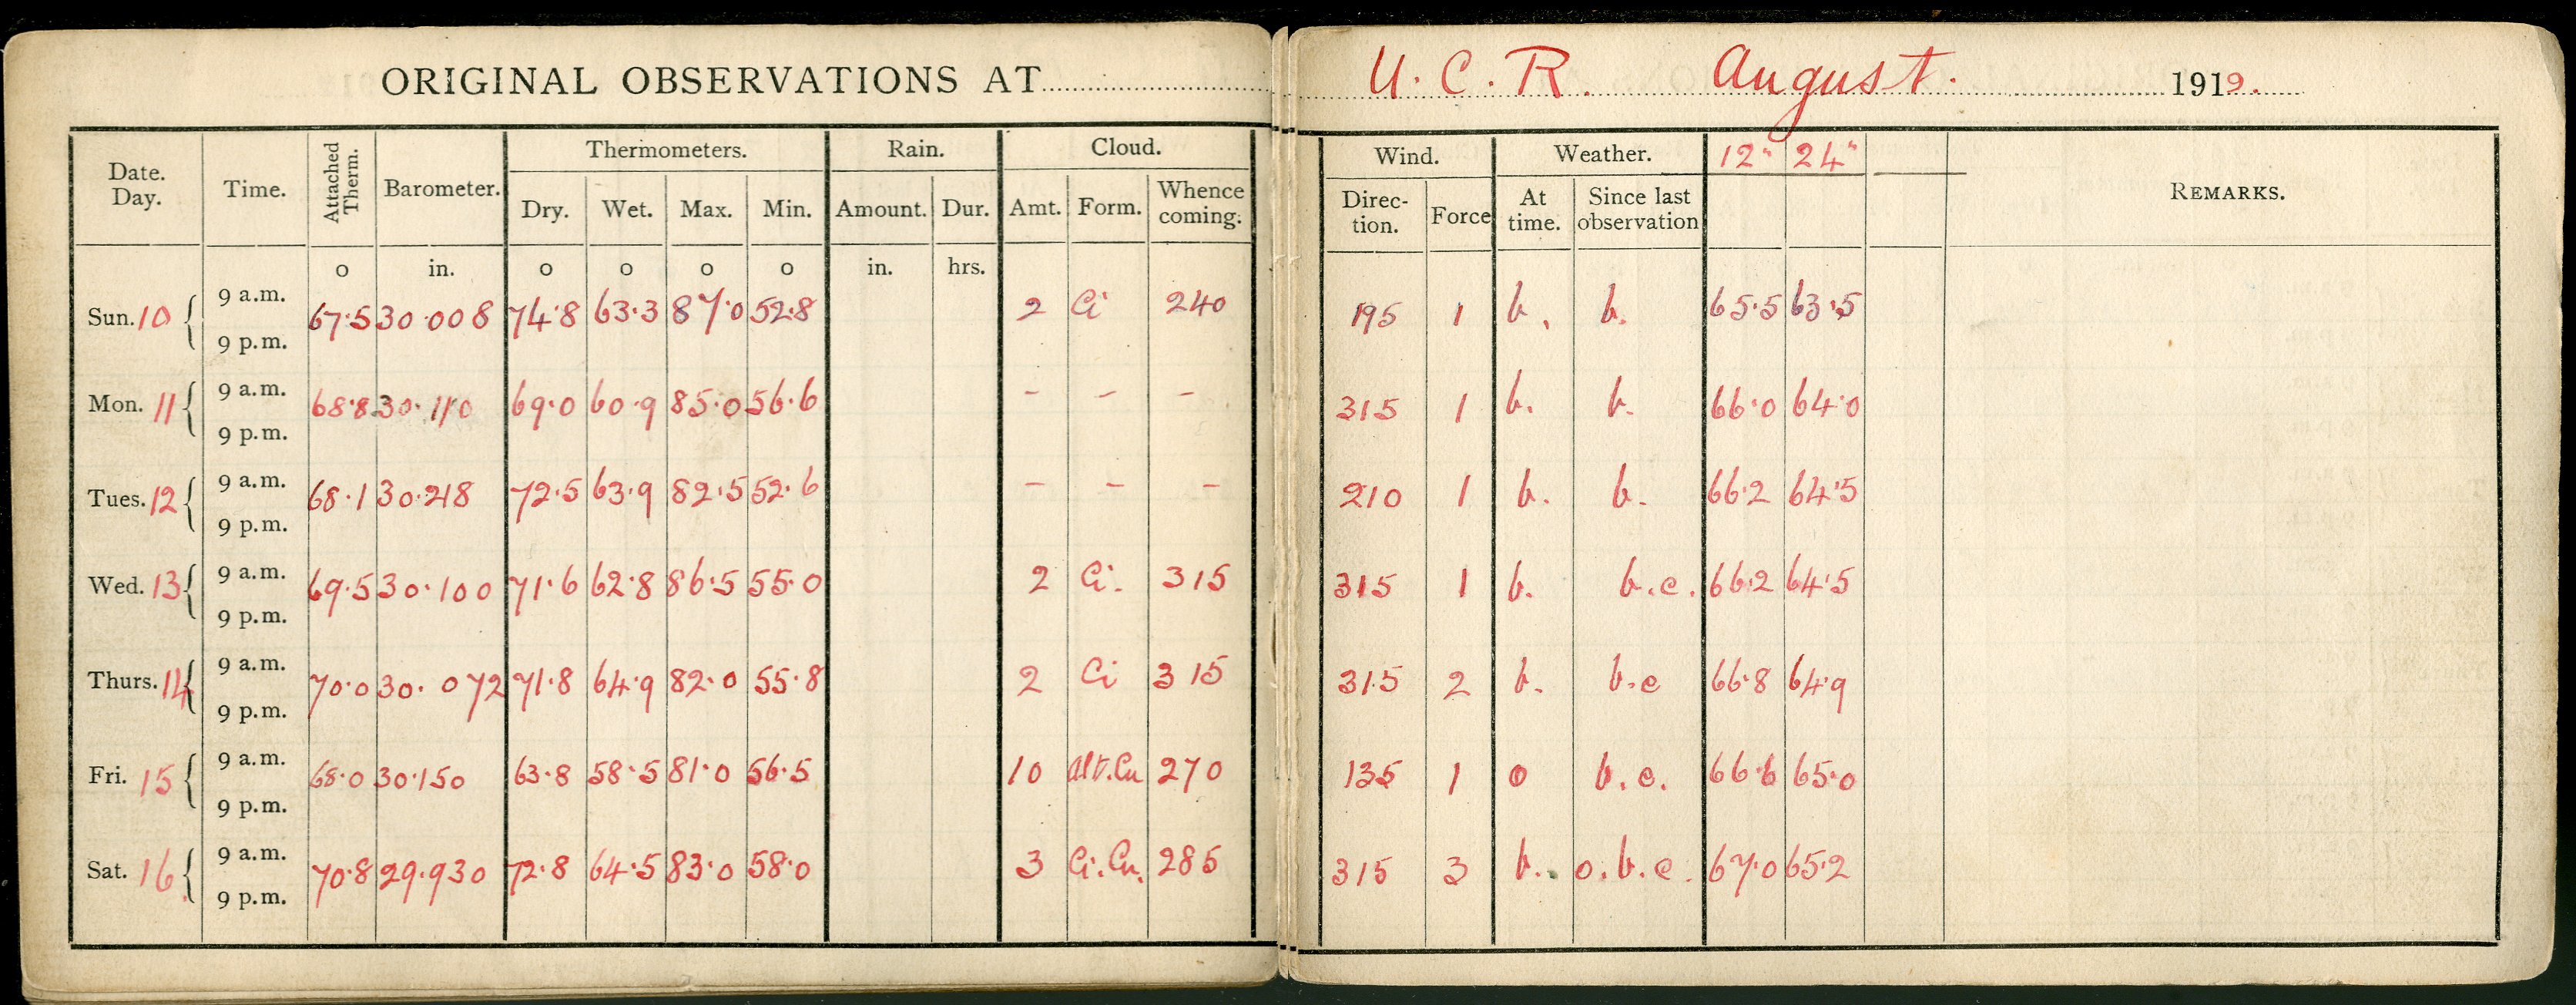 ORIGINAL OBSERVATIONS AT U. C. R. August. 1919.
Date. Day. Time. Attached Therm. Barometer. Thermometers. Rain. Cloud. Wind. Weather. 12" 24" REMARKS.
Dry. Wet. Max. Min. Amount. Dur. Amt. Form. Whence coming. Direc-tion. Force At time. Since last observation
o in. o o o o in. hrs.
Sun. 10 9 a.m. 67.5 30.008 74.8 63.3 87.0 52.8 2 Ci 240 195 1 b. b. 65.5 63.5
9 p.m.
Mon. 11 9 a.m. 68.8 30.110 69.0 60.9 85.0 56.6 - - - 315 1 b. b. 66.0 64.0
9 p.m.
Tues. 12 9 a.m. 68.1 30.218 72.5 63.9 82.5 52.6 - - - 210 1 b. b. 66.2 64.5
9 p.m.
Wed. 13 9 a.m. 69.5 30.100 71.6 62.8 86.5 55.0 2 Ci. 315 315 1 b. b.c. 66.2 64.5
9 p.m.
Thurs. 14 9 a.m. 70.0 30.072 71.8 64.9 82.0 55.8 2 Ci 315 315 2 b. b.c 66.8 64.9
9 p.m.
Fri. 15 9 a.m. 68.0 30.150 63.8 58.5 81.0 56.5 10 Alt.Cu 270 135 1 o b.c. 66.6 65.0
9 p.m.
Sat. 16 9 a.m. 70.8 29.930 72.8 64.5 83.0 58.0 3 Ci.Cu. 285 315 3 b. o.b.c. 67.0 65.2
9 p.m.